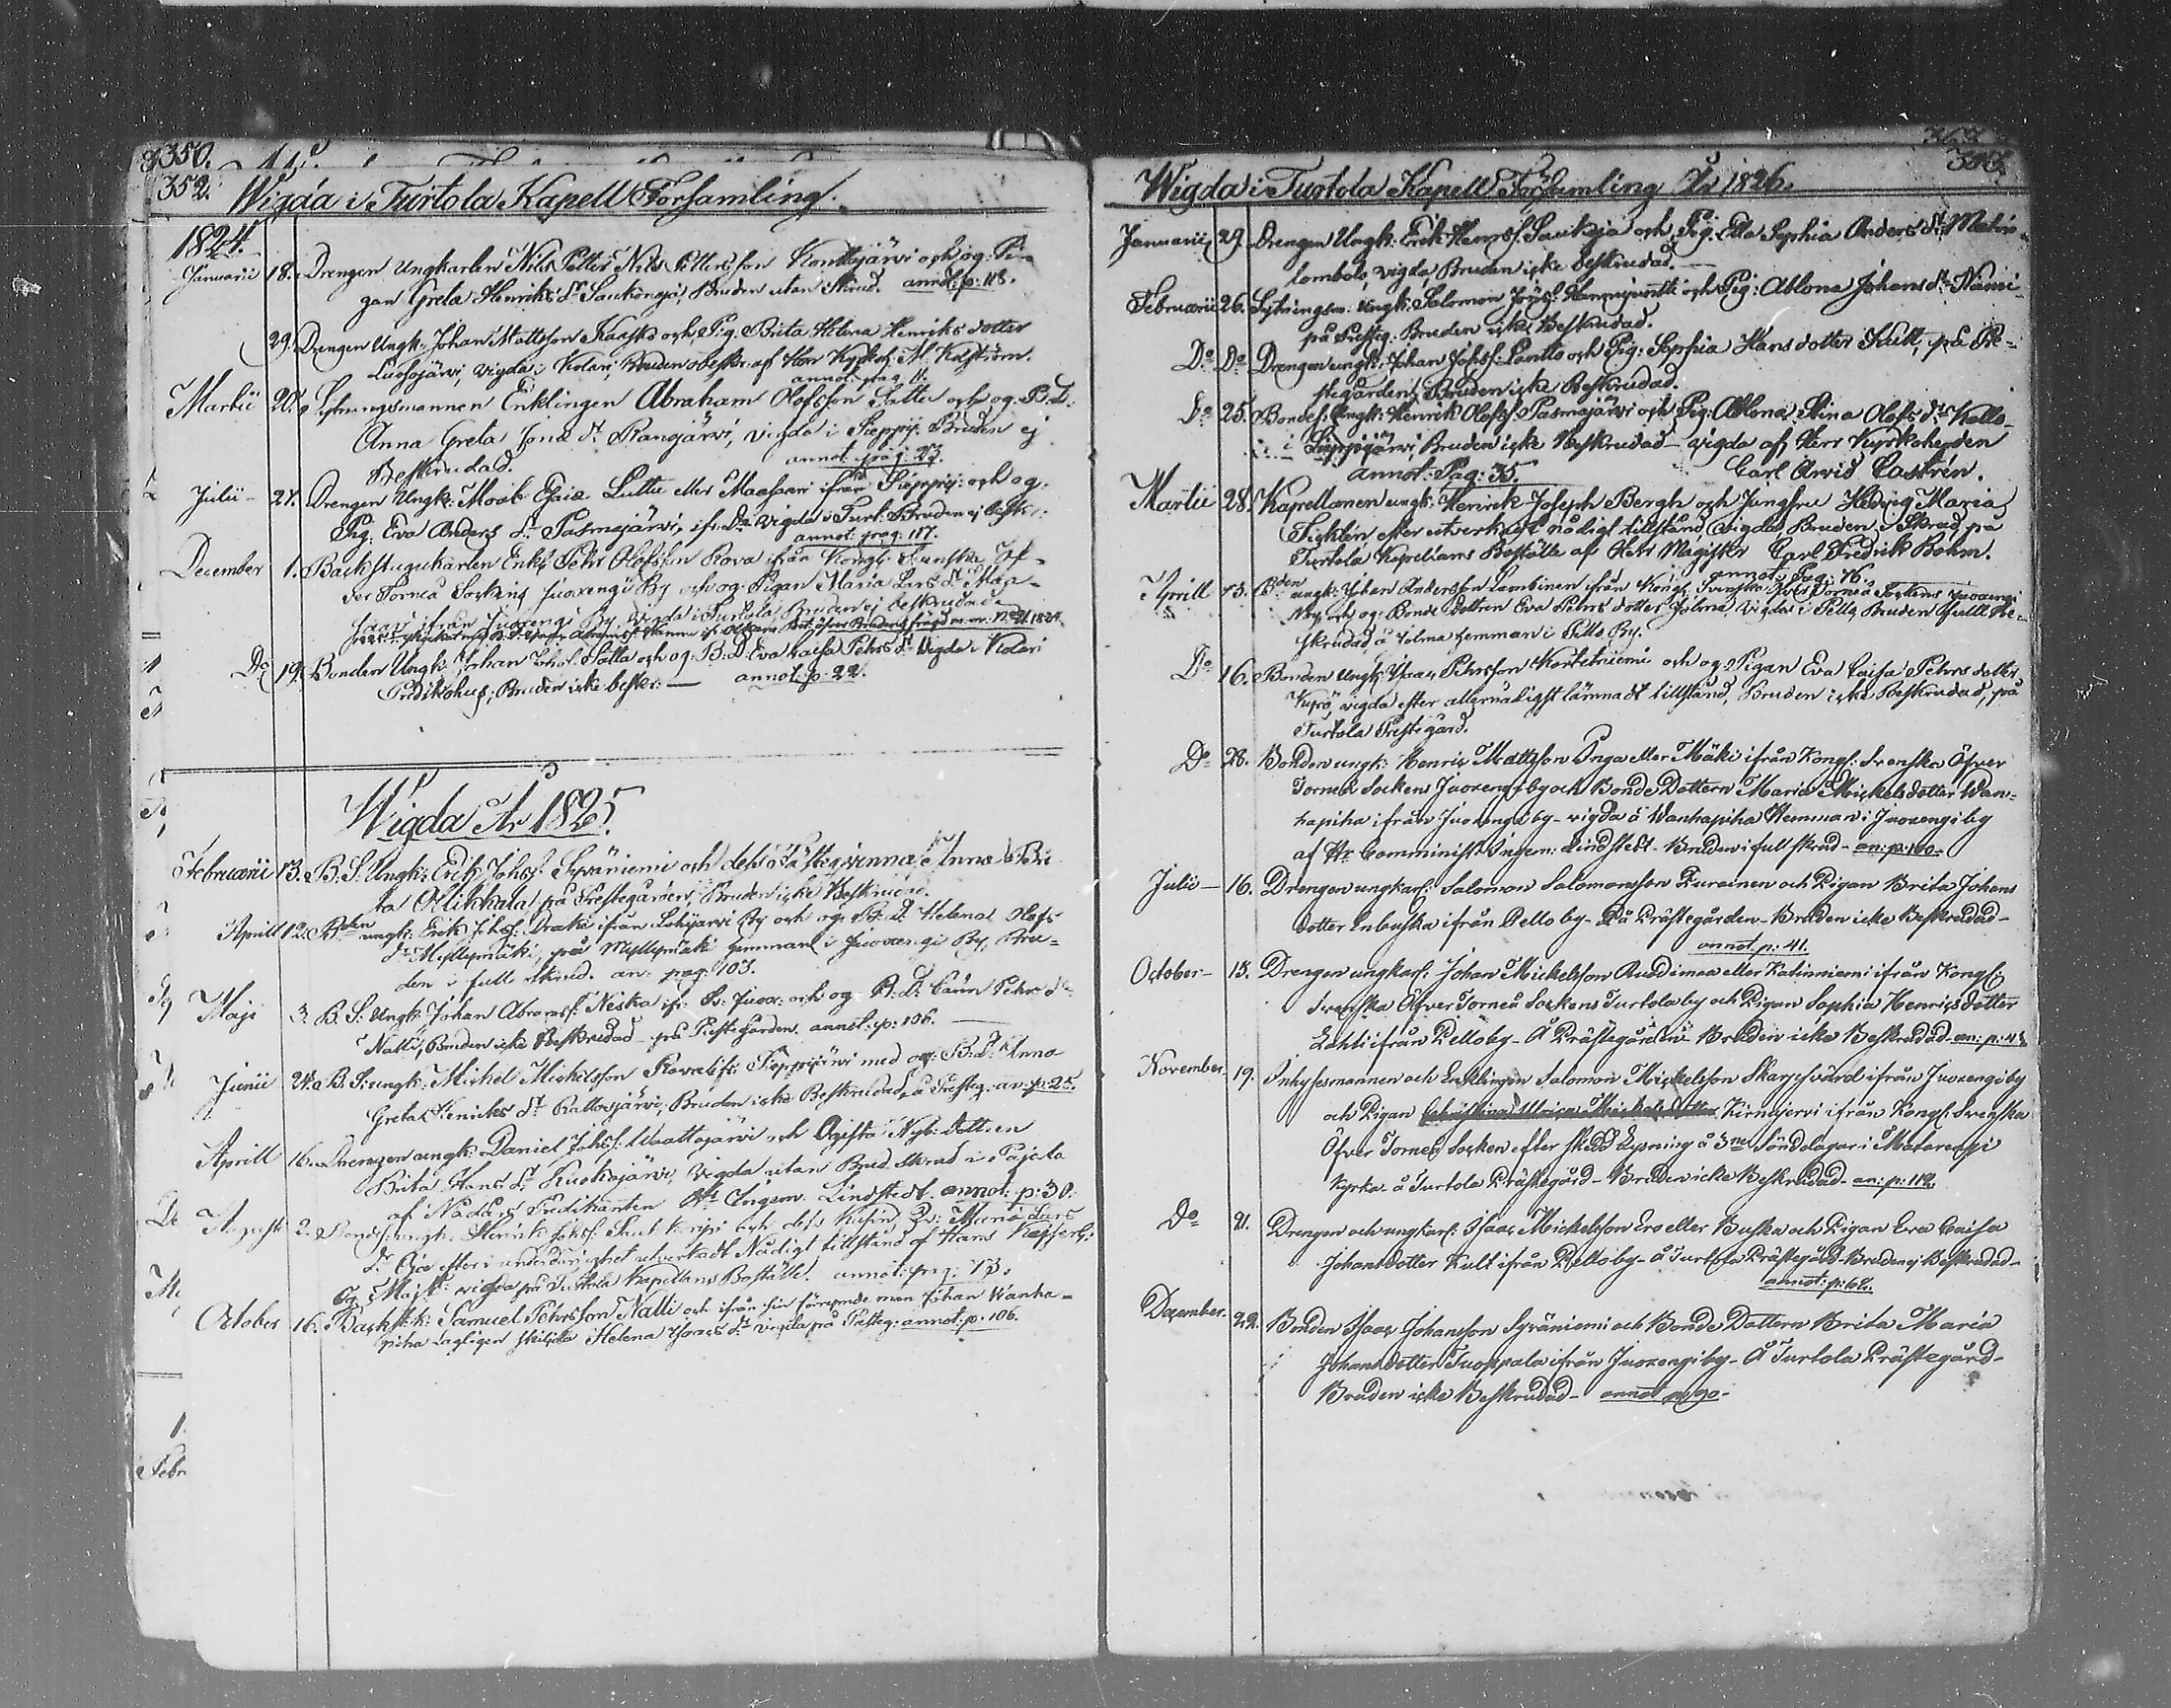 350.
352. Wigda i Turtola Kapell Församling.
1824.
Januarii 18. Drengen Ungkarlen Nils Petter Nils Pettersson Konttajärvi och og: Pi-
gan Greta Henriks dr Saukoroja, Bruden utan Skrud. annot: p: 118.
29. Drengen Ungk: Johan Mattsson Kaasko och Pig. Brita Helena Henriks dotter
Luosojärvi, Vigda i Kolari, Bruden af Herr
annot. pag. 11.
Martii 20. Enklingen Abraham Olofsson Satta och og. B.D.
Anna Greta Jone dr Rangjärvi, vigda i Sieppij. Bruden ej
Beskrudad. annot. pag: 23.
Julii 27. Drengen Ungk: Esaiæ Luttu eller ifrån Sieppij: och og.
Pig. Eva Anders dr Pasmajärvi, ifr: Do Vigda i Turt. Bruden ej beskr:
annot: pag: 117.
December 1. Backstugukarlen Enkl: Pehr Olofsson Rova ifrån Kongl: Svenska Öf-
ver Torneå Sockens Juoxengi By och og. Pigan Maria Lars dr
ifrån Juoxengi By, vigda i Turtola, Bruden ej beskrudad.
1824.
Do 19. Bonden Ungk: Johan Johss. Satta och og. B.D. Eva Caisa Pehrs dr Vigda i Kolari
Predikohus, Bruden icke beskr: — annot. p: 22.
Wigda År 1825.
Februarii 13. B. S: Ungk: Erik Johss. Syväniemi och dess Fästeqvinna Anna Bri
ta Mikkala, på Prestegården, Bruden icke Beskrudad.
Aprill 12. Bden ungk: Erik Johss. Drake ifrån Lohijärvi By och og. B: D: Helena Olofs
dr Myllymäki, på Myllymäki hemman i Juoxengi By, Bru-
den i full skrud. an: pag: 103.
Maji 3. B. S: Ungk: Johan Abramss: Niska ifr: Sv: Juox: och og B: D: Carin Pehrs dr
Nalli, Bruden icke Beskrudad på Preste Gården. annot: p: 106.
Junii 24. B. S: ungk: Mickel Mickelsson Rova ifr: Sieppijärvi med og: B: D: Anna
Greta Henriks dr Rattosjärvi, Bruden icke Beskrudad, å Presteg: an: p: 25.
Aprill 16. Drengen ungk: Daniel Johss. Waattojärvi och Ogifta Nyb: dottren
Brita Hans dr Ruokojärvi, Vigda utan Brud Skrud i Pajala
af Nådårs Predikanten Hr Ingem. Lindstedt. annot. p: 30.
Augusti 2. Bondes: ungk: Henrik Johss: och dess Kusin, Maria Lars
dr Oja efter i underdånighet utverkadt Nådigt tillstånd af Hans Kejserl:
Maj:t: vigda på Turtola Kapellans Boställe. annot: pag: 73.
October 16. Backstk: Samuel Pehrsson Nalli och ifrån sin förrymde man Johan Wanha-
piha Lagligen skilgda Helena Isaacs dr vigda på Presteg: annot: p: 106.
Wigda i Turtola Kapell Församling År 1826.
Januarii 29. Drengen Ungk: Erik Henss. Saukoja och Pig: Ella Sophia Anders dr
lombolo, vigda, Bruden icke beskrudad.
Februarii 26. Sytningsm. ungk: Salomon och Pig: Ablona Johans dr
på Presteg: Bruden icke Beskrudad.
Do Do Drengen ungk: Johan Johss: Lantto och Pig: Sophia Hans dotter Kult, på Pre-
stegården, Bruden icke Beskrudad.
Do 25. Bondes: Ungk: Henrik Olofss: Pasmajärvi och Pig: Ablona Stina Olofs dr Kallo
i Sieppijärvi Bruden icke Beskrudad vigda af Herr Kyrkoherden
annot: Pag: 35. Carl Arvid Castrén.
Martii 28. Kapellanen ungk: Henrik Joseph Bergh och Jungfru Hedvig Maria
efter utverkadt nådigt tillstånd, vigda, Bruden i Skrud, på
Turtola Kapellans Boställe af Herr Magister Carl Fredrik Bohm.
annot: Pag: 76.
Aprill 13. Bden ungk: Johan Andersson Lambinen ifrån Kongl: Svenska Öfver Torneå Sockens Juoxengi
By, och og: Bonde dottren Eva Pehrs dotter Jolma, vigda i Pello, Bruden full Be-
skrudad å Jolma hemman i Pello By.
Do 16. Bonden Ungk: Isaac Pehrsson Korteniemi och og: Pigan Eva Caisa Pehrs dotter
Kyrö, vigda efter allernådigst lämnadt tillstånd, Bruden icke Beskrudad, på
Turtola Prestegård.
Do 28. Bonden ungk: Henric Mattsson Inga eller Mäki ifrån Kongl: Svenska Öfver
Torneå Sockens Juoxengi by och Bonde Dottern Maria Mickelsdotter Wan-
hapiha ifrån Juoxengi by - vigda å Wanhapiha Hemman i Juoxengi by
af Hr Comminist: Ingem: Lindstedt - Bruden i full skrud - an: p: 100.
Julii - 16. Drengen ungkarl: Salomon Salomonsson Kurainen och Pigan Brita Johans
dotter Enbuska ifrån Pello by - På Prästegården - Bruden icke Beskrudad -
annot. p: 41.
October - 15. Drengen ungkarl: Johan Mickelsson Ruddimaa eller Katiniemi ifrån Kongl:
Svenska Öfver Torneå Sockens Turtola by och Pigan Sophia Henricsdotter
Lahti ifrån Pello by - Å Prästegården - Bruden icke Beskrudad - an: p: 43.
November 19. Inhysesmannen och Enklingen Salomon Mickelsson Skarpsvärd ifrån Juoxengi by
och Pigan Christina Ulrica Mickels dotter Kirnujervi ifrån Kongl: Svenska
Öfver Torneå Socken efter skedd Lysning å 3ne Sönddagar i Matarengi
Kyrka - å Turtola Prästegård - Bruden icke Beskrudad - an: p: 112.
Do 21. Drengen och ungkarl: Isaac Mickelsson Ero eller Buska och Pigan Eva Caisa
Johansdotter Kult ifrån Pello by - å Turtola Prästegård - Bruden ej Beskrudad -
annot: p: 62.
December. 22. Bonden Isaac Johansson Syväniemi och Bonde Dottern Brita Maria
Johansdotter Tuoppala ifrån Juoxengi by - Å Turtola Prästegård -
Bruden icke Beskrudad - annot p: 90 -